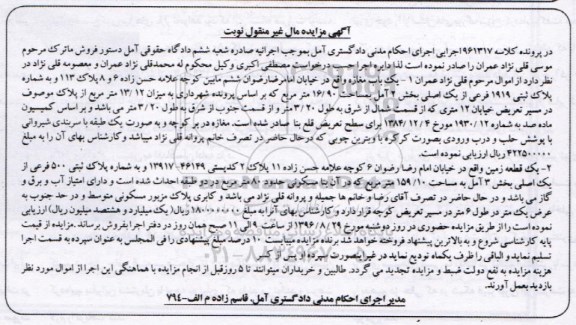 آگهی مزایده مال غیر منقول نوبت
در پرونده کلاسه ۹۶۱۳۱۷اجرایی اجرای احکام مدنی دادگستری آمل بموجب اجرائیه صادره شعبه ششم دادگاه حقوقی آمل دستور فروش ماترک مرحوم
موسی قلی نژاد عمران را صادر نموده است لذا دایره اجرا حسب درخواست مصطفی اکبری وکیل محکوم له محمدقلی نژاد عمران و معصومه قلی نژاد در
نظر دارد از اموال مرحوم قلی نژاد عمران ۱ - یک باب مغازه واقع در خیابان امام رضا رضوان ششم مابین کوچه علامه حسن زاده ۶ و ۸ پلاک ۱۱۳ و به شماره
پلاک ثبتی ۱۹۱۹ فرعی از یک اصلی بخش ۳ آمل به مساحت ۱۶/۹۰ متر مربع که بر اساس پرونده شهرداری به میزان ۱۳/۱۲ متر مربع از پلاک موصوف
در مسیر تعریض خیابان ۱۲ متری که از قسمت شمال از شرق به طول ۳/۲۰ متر و از قسمت جنوب از شرق به طول ۳/۲۰ متر می باشد و بر اساس کمیسیون
ماده صد به شماره ۱۹۳۰/۱۲ مورخ ۱۳۸۴/۱۲/۴ برای سطح تعریض قلع بنا صادر شده است. مغازه در بر کوچه و به صورت یک طبقه با سربندی شیروانی
با پوشش حلب و درب ورودی بصورت کرکره با ویترین چوبی که درحال حاضر در تصرف خانم پروانه قلی نژاد میباشد و کارشناس بهای آن را به مبلغ
۴۲۲۵۰۰۰۰۰ ریال ارزیابی نموده است.
۲ - یک قطعه زمین واقع در خیابان امام رضا رضوان ۶ کوچه علامه حسن زاده ۱۱ پلاک ۲ کدپستی ۴۶۱۴۹-۱۳۹۱۷ و به شماره پلاک ثبتی ۵۰۰ فرعی از
یک اصلی بخش ۳ آمل به مساحت ۱۵۹/۱۰ متر مربع که در آن بنا مسکونی حدود ۸۰ متر مربع در دو طبقه احداث شده است و دارای امتیاز آب و برق و
گاز می باشد و در حال حاضر در تصرف آقای رضا و خانم ها جمیله و پروانه قلی نژاد می باشد و کابری پلاک مزبور مسکونی متوسط و در حد جنوب به
عرض یک متر در طول ۶ متر در مسیر تعریض کوچه قرار دارد و کارشناس بهای آنرا به مبلغ ۱۸۰۰۰۰۰۰۰۰ ریال (یک میلیارد و هشتصد میلیون ریال) ارزیابی
نموده است را از طریق مزایده حضوری در روز دوشنبه مورخ ۱۳۹۶/۸/۲۹ از ساعت ۹ الی ۱۱ صبح همان روز در دفتر اجرا بفروش برساند. مزایده از قیمت
پایه کارشناسی شروع و به بالاترین پیشنهاد فروخته خواهد شد برنده مزایده میبایست ۱۰ درصد مبلغ پیشنهادی را فی المجلس به عنوان سپرده به قسمت اجرا
تسلیم نماید و الباقی را ظرف یکماه تودیع نماید در غیر اینصورت سپرده او پس از کسر
هزینه مزایده به نفع دولت ضبط و مزایده تجدید می گردد. طالبین و خریداران میتوانند تا ۵ روز قبل از انجام مزایده با هماهنگی این اجرا از اموال مورد نظر
بازدید بعمل آورند.
مدیر اجرای احکام مدنی دادگستری آمل، قاسم زاده م الف-۷۹۴